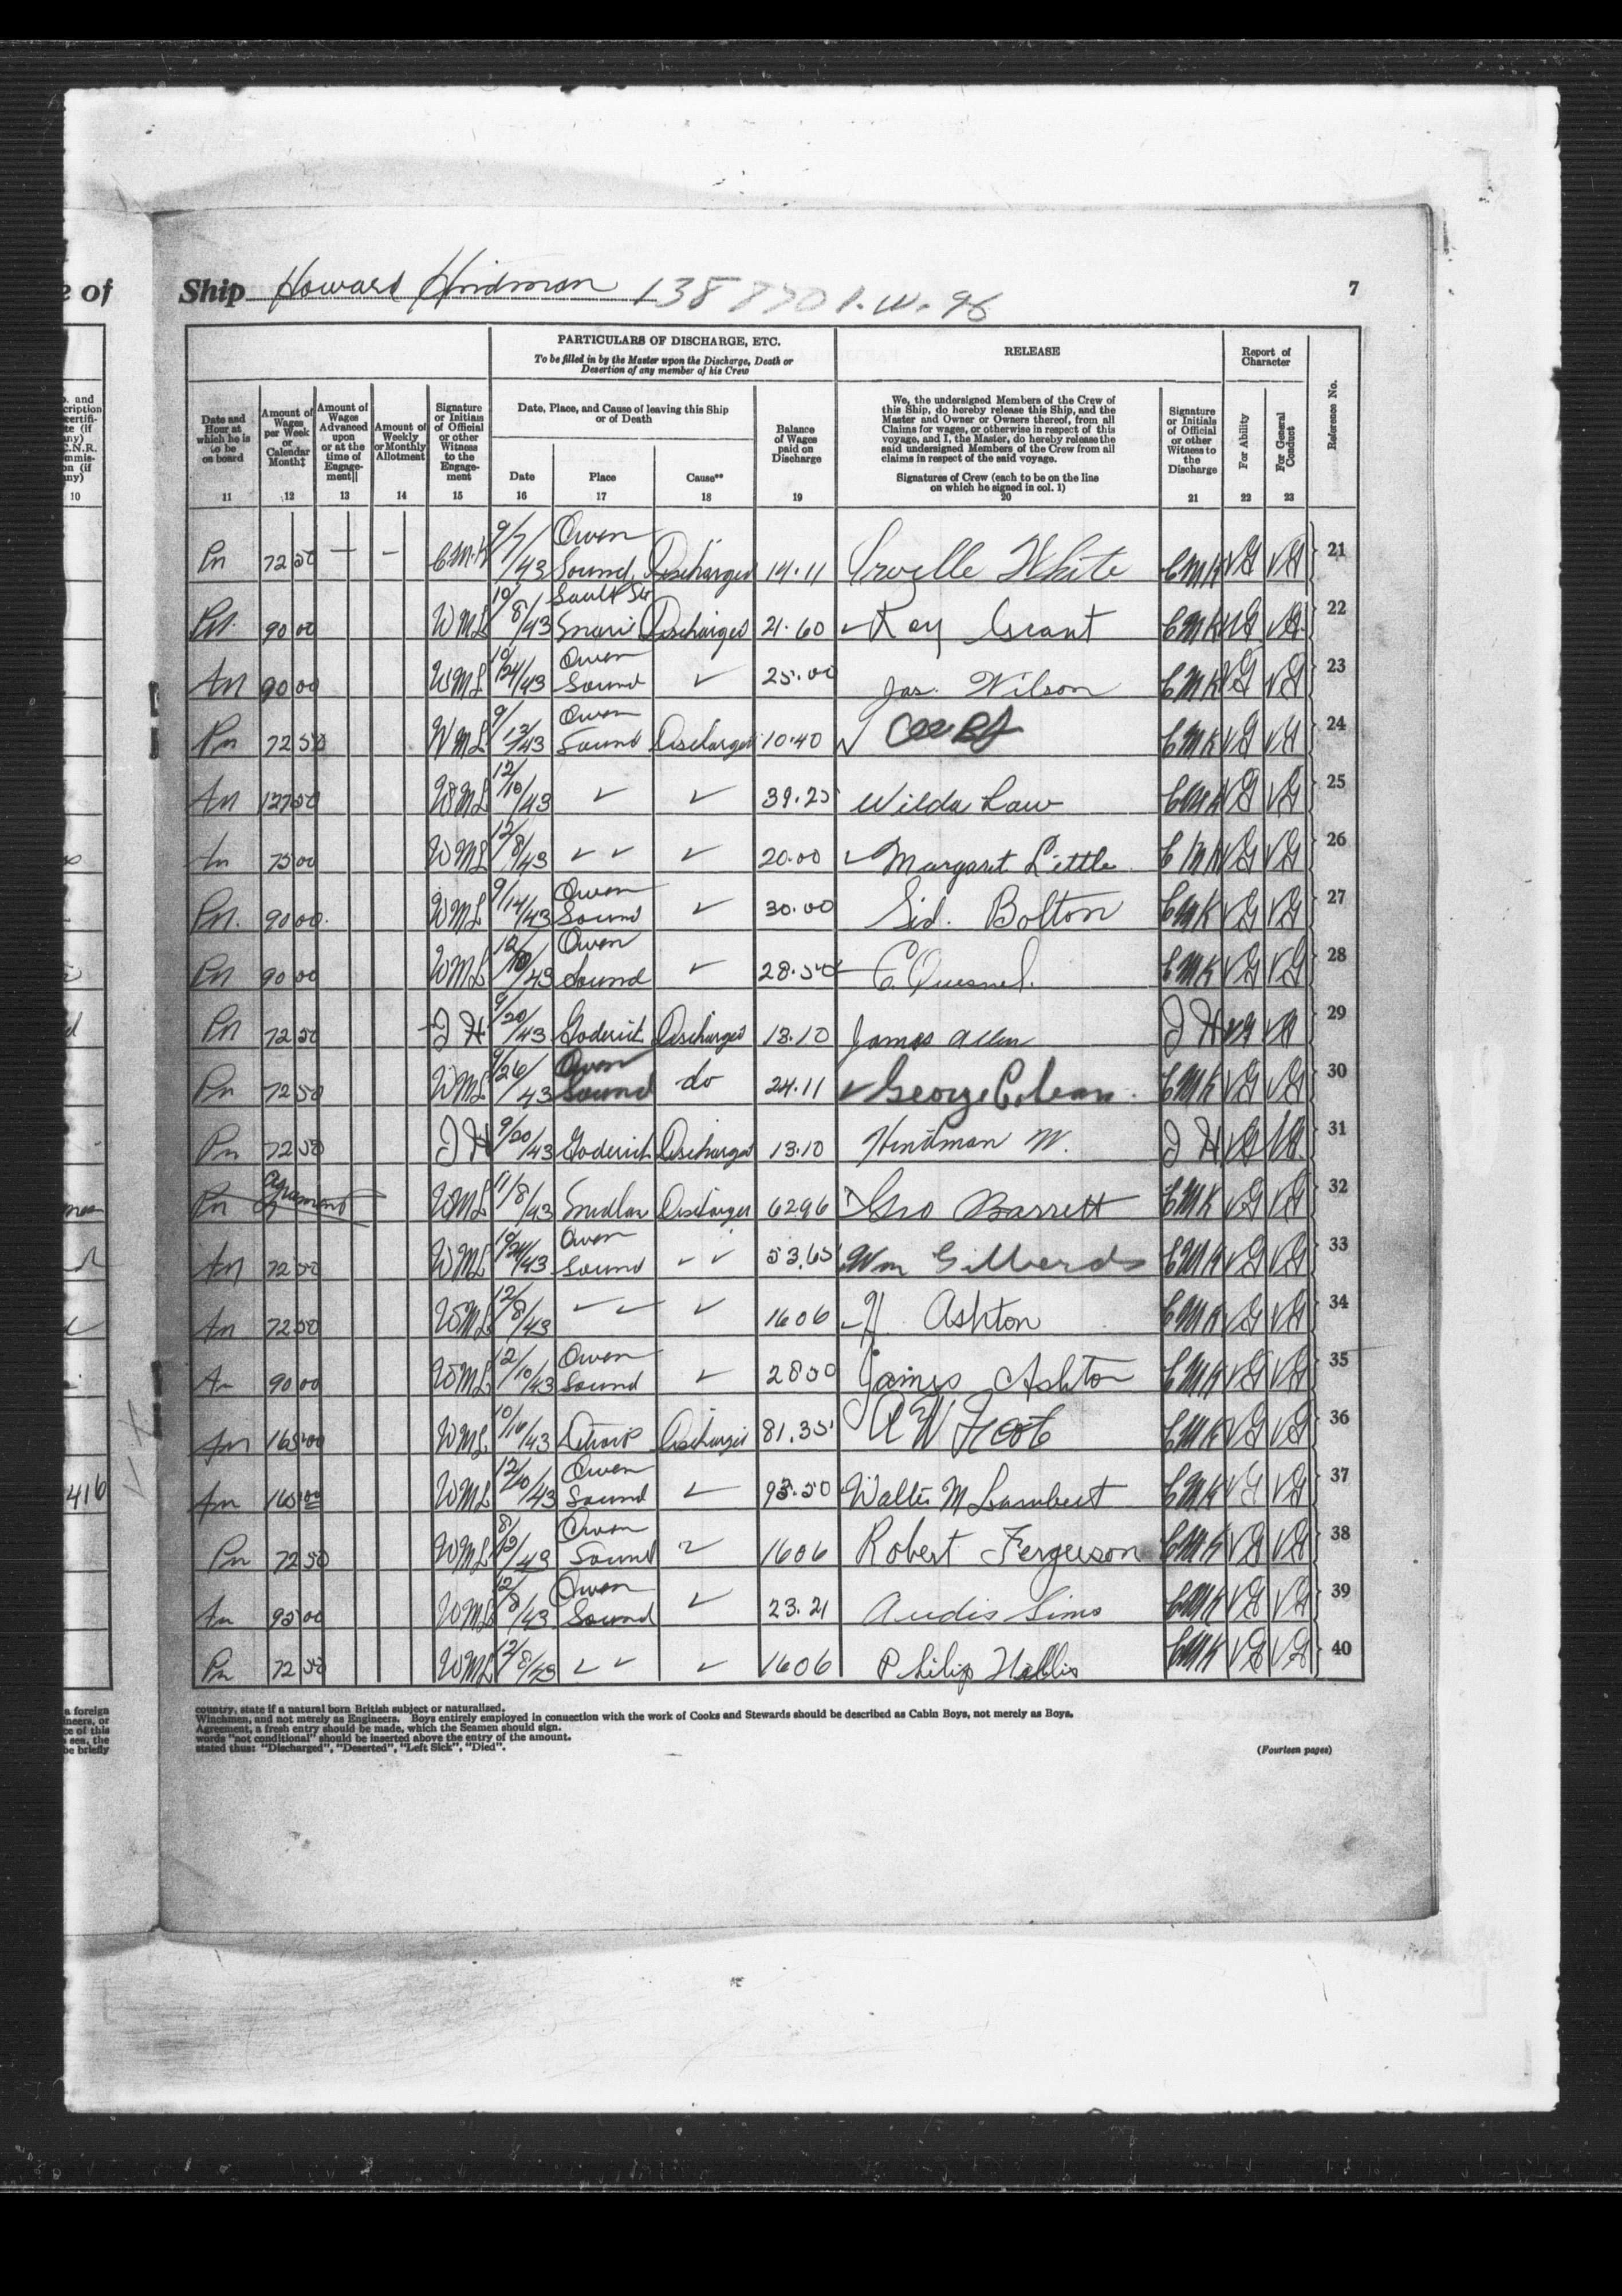 e of
Ship Howard Hindman 138870 I.W. 96
7
PARTICULARS OF DISCHARGE, ETC.
To be filled in by the Master upon the Discharge, Death or
Desertion of any member of his Crew
RELEASE
Report of
Character
Date and
Hour at
which he is
to be
on board
11
Amount of
Wages
per Week
or
Calendar
Month‡
12
Amount of
Wages
Advanced
upon
or at the
time of
Engage-
ment||
13
Amount of
Weekly
or Monthly
Allotment
14
Signature
or Initials
of Official
or other
Witness
to the
Engage-
ment
15
Date, Place, and Cause of leaving this Ship
or of Death
Date
16
Place
17
Cause**
18
Balance
of Wages
paid on
Discharge
19
We, the undersigned Members of the Crew of
this Ship, do hereby release this Ship, and the
Master and Owner or Owners thereof, from all
Claims for wages, or otherwise in respect of this
voyage, and I, the Master, do hereby release the
said undersigned Members of the Crew from all
claims in respect of the said voyage.
Signatures of Crew (each to be on the line
on which he signed in col. 1)
20
Signature
or Initials
of Official
or other
Witness to
the
Discharge
21
For Ability
22
For General
Conduct
23
Reference No.
Pn 72 50 — — C.M.K 9/7/43 Owen Sound Discharged 14.11 Orville White CMK VG VG 21
Pn. 90 00 WML 10/8/43 Sault Ste Marie Discharged 21.60 ✓ Ray Grant CMK VG VG 22
An 90 00 WML 10/24/43 Owen Sound ✓ 25.00 Jas. Wilson CMK VG VG 23
Pn 72 50 WML 9/13/43 Owen Sound Discharged 10.40 ✓ CMK VG VG 24
An 127 50 WML 12/10/43 ✓ ✓ 39.25 Wilda Law CMK VG VG 25
An 75 00 WML 12/8/43 ✓ ✓ ✓ 20.00 ✓ Margaret Little CMK VG VG 26
Pn. 90 00 WML 9/14/43 Owen Sound ✓ 30.00 Sid. Bolton CMK VG VG 27
Pn 90 00 WML 12/10/43 Owen Sound ✓ 28.50 E. Quesnel. CMK VG VG 28
Pn 72 50 J H 9/20/43 Goderich Discharged 13.10 James Allen J H VG VG 29
Pn 72 50 WML 9/26/43 Owen Sound do 24.11 ✓ George CMK VG VG 30
Pn 72 50 J H 9/20/43 Goderich Discharged 13.10 Hindman W. J H VG VG 31
Pn WML 11/8/43 Discharged 62.96 Geo Barrett CMK VG VG 32
An 72 50 WML 10/24/43 Owen Sound ✓ ✓ 53.65 Wm Gilberds CMK VG VG 33
An 72 50 WML 12/8/43 ✓ ✓ ✓ 16 06 H. Ashton CMK VG VG 34
An 90 00 WML 12/10/43 Owen Sound ✓ 28 50 James Ashton CMK VG VG 35
An 165 00 WML 10/10/43 Detroit Discharged 81.35 A W Foote CMK VG VG 36
An 165 00 WML 12/10/43 Owen Sound ✓ 93.50 Walter M Lambert CMK VG VG 37
Pn 72 50 WML 8/12/43 Owen Sound ✓ 16 06 Robert Ferguson CMK VG VG 38
An 95 00 WML 12/8/43 Owen Sound ✓ 23.21 Audis Sims CMK VG VG 39
Pn 72 50 WML 12/8/43 ✓ ✓ ✓ 16 06 Philip Hallis CMK VG VG 40
416
country, state if a natural born British subject or naturalized.
Winchmen, and not merely as Engineers. Boys entirely employed in connection with the work of Cooks and Stewards should be described as Cabin Boys, not merely as Boys.
Agreement, a fresh entry should be made, which the Seamen should sign.
words "not conditional" should be inserted above the entry of the amount.
stated thus: "Discharged", "Deserted", "Left Sick", "Died".
(Fourteen pages)